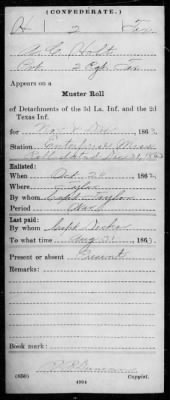 (CONFEDERATE.)
H 2 Tex
A. G. Holt
2 Tex
Appears on a
Muster Roll
of Detachments of the 3d La. Inf. and the 2d
Texas Inf.
for Nov & Dec 1863.
Station Enterprise Miss
Dec 31, 1863
Enlisted:
When 186
Where
By whom Capt Taylor
Period War
Last paid:
By whom Capt
To what time Aug 31 1863.
Present or absent Present
Remarks:
Book mark:
(656) 4904 Copyist.